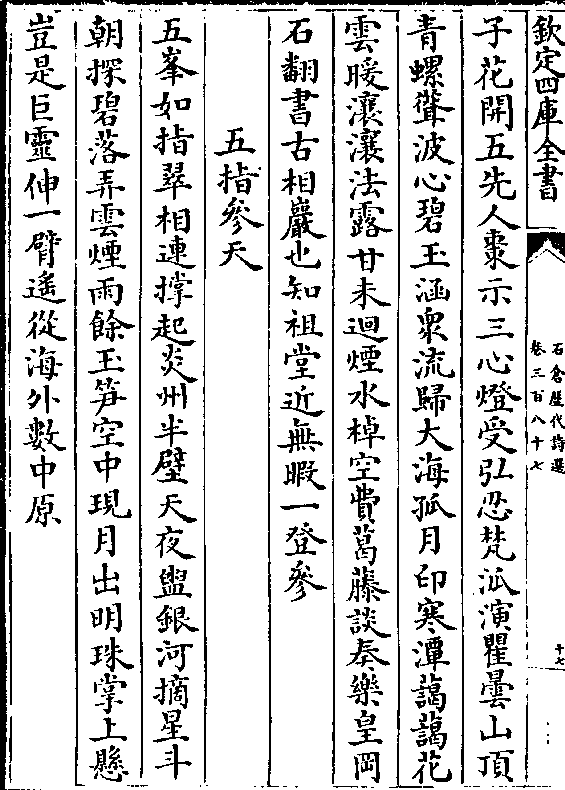 欽定四庫全書
石倉歷代詩選
卷三百八十七
十七
子花開五先人棗示三心燈受弘忍梵派演瞿曇山頂
青螺聳波心碧玉涵衆流歸大海孤月印寒潭藹藹花
雲暖瀼瀼法露甘未迴煙水棹空費葛藤談奏樂皇岡
石翻書古相巖也知祖堂近無暇一登參
五指參天
五峯如指翠相連撑起炎州半壁天夜盥銀河摘星斗
朝探碧落弄雲煙雨餘玉笋空中現月出明珠掌上懸
豈是巨靈伸一臂遙從海外數中原